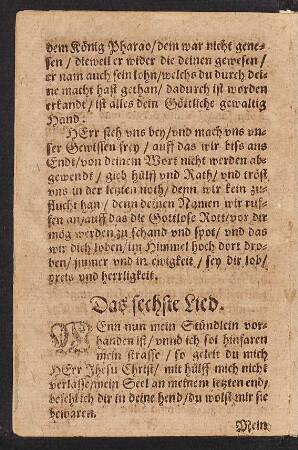 dem König Pharao/dem war nicht gene-
sen / dieweil er wider die deinen gewesen /
er nam auch sein lohn/welchs du durch dei-
ne macht hast gethan/ dadurch ist worden
erkandt / ist alles dein Göttliche gewaltig
Hand.
HErr steh vns bey/vnd mach vns vn-
ser Gewissen frey / auff das wir biß ans
Endt/von deinem Wort nicht werden ab-
gewendt / gieb hülff vnd Rath/ vnd tröst
vns in der letzten noth/ denn wir kein zu-
flucht han / denn deinen Namen wir ruf-
fen an/auff das die Gottlose Rott/vor dir
mög werden zu schand vnd spot/ vnd das
wir dich loben/im Himmel hoch dort dro-
ben/ jmmer vnd in ewigkeit / sey dir lob/
preis vnd herrligkeit.
Das sechste Lied.
WEnn nun mein Stündlein vor-
handen ist / vnnd ich sol hinfaren
mein strasse / so geleit du mich
HErr Jhesu Christ/ mit hülff mich nicht
verlasse/mein Seel an meinem letzten end/
befehl ich dir in deine hend/du wolst mir sie
bewaren.
Mein